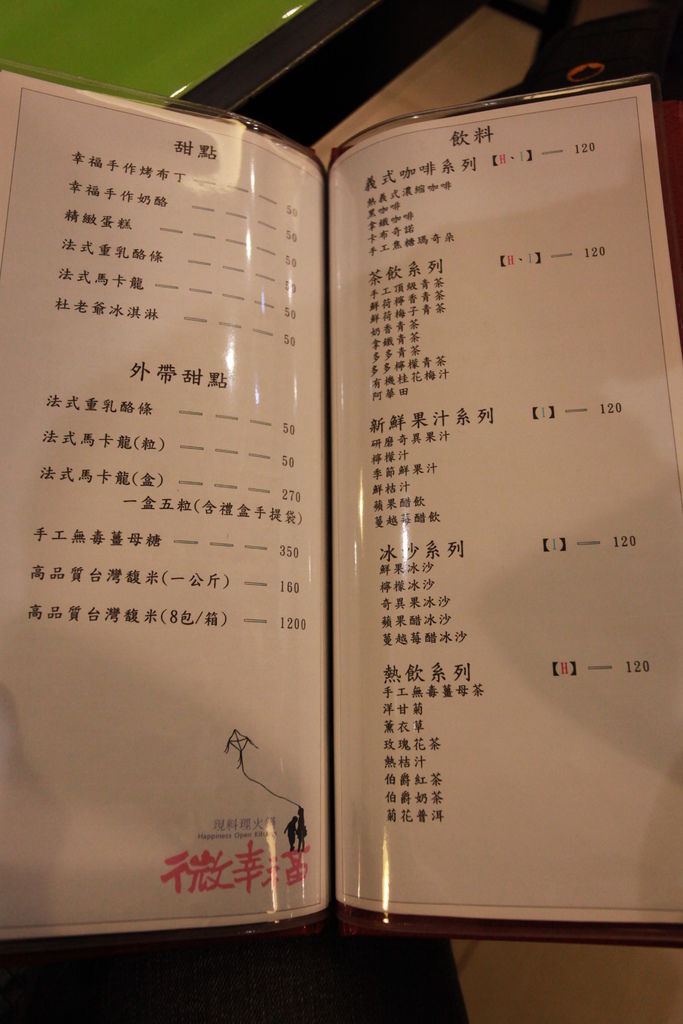 甜點
幸福手作烤布丁 — — — 50
幸福手作奶酪 — — — 50
精緻蛋糕 — — — 50
法式重乳酪條 — — — 50
法式馬卡龍 — — — — 50
杜老爺冰淇淋 — — — 50
外帶甜點
法式重乳酪條 — — — 50
法式馬卡龍(粒) — — — 50
法式馬卡龍(盒) — — — 270
一盒五粒(含禮盒手提袋)
手工無毒薑母糖 — — — 350
高品質台灣馥米(一公斤) — 160
高品質台灣馥米(8包/箱) — 1200
現料理火鍋
Happiness Open Kitchen
微幸福
飲料
義式咖啡系列【H、I】— 120
熱義式濃縮咖啡
黑咖啡
拿鐵咖啡
卡布奇諾
手工焦糖瑪奇朵
茶飲系列 【H、I】— 120
手工頂級青茶
鮮荷檸香青茶
鮮荷梅子青茶
奶香青茶
拿鐵青茶
多多青茶
多多檸檬青茶
有機桂花梅汁
阿華田
新鮮果汁系列 【I】— 120
研磨奇異果汁
檸檬汁
季節鮮果汁
鮮桔汁
蘋果醋飲
蔓越莓醋飲
冰沙系列 【I】— 120
鮮果冰沙
檸檬冰沙
奇異果冰沙
蘋果醋冰沙
蔓越莓醋冰沙
熱飲系列 【H】— 120
手工無毒薑母茶
洋甘菊
薰衣草
玫瑰花茶
熱桔汁
伯爵紅茶
伯爵奶茶
菊花普洱